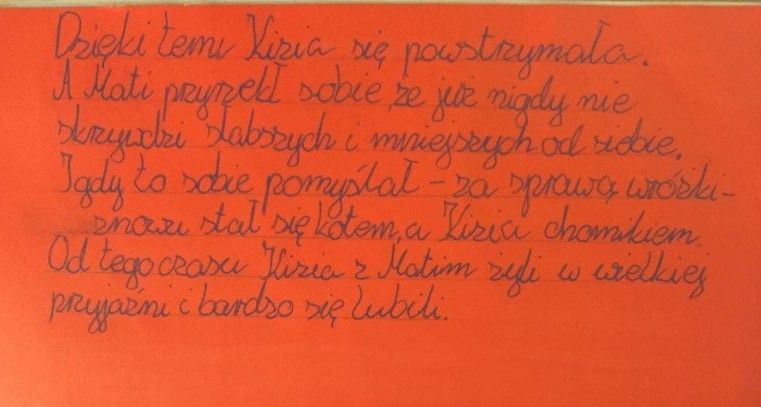 Dzięki temu Kizia się powstrzymała.
A Mati przyrzekł sobie, że już nigdy nie
skrzywdzi słabszych i mniejszych od siebie.
I gdy to sobie pomyślał - za sprawą wróżki -
znowu stał się kotem, a Kizia chomikiem.
Od tego czasu Kizia z Matim żyli w wielkiej
przyjaźni i bardzo się lubili.